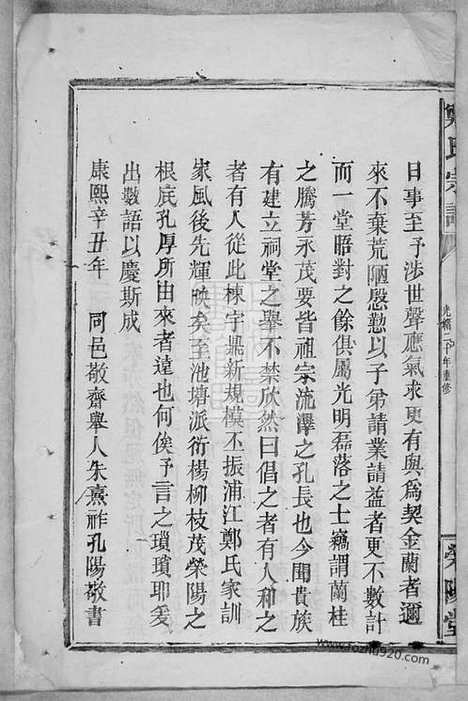 鄭氏宗譜
光緒二十年重修
榮陽堂
日事至予涉世聲應氣求更有與為契金蘭者邇
來不棄荒陋慇懃以子弟請業請益者更不數計
而一堂晤對之餘俱屬光明磊落之士竊謂蘭桂
之騰芳永茂要皆祖宗流澤之孔長也今聞貴族
有建立祠堂之舉不禁欣然曰倡之者有人和之
者有人從此棟宇鼎新規模丕振浦江鄭氏家訓
家風後先輝映矣至池塘派衍楊柳枝茂榮陽之
根底孔厚所由來者遠也何俟予言之瑣瑣耶爰
出數語以慶斯成
康熙辛丑年 同邑敬齋舉人朱熹祚孔陽敬書
www.fozhu920.com